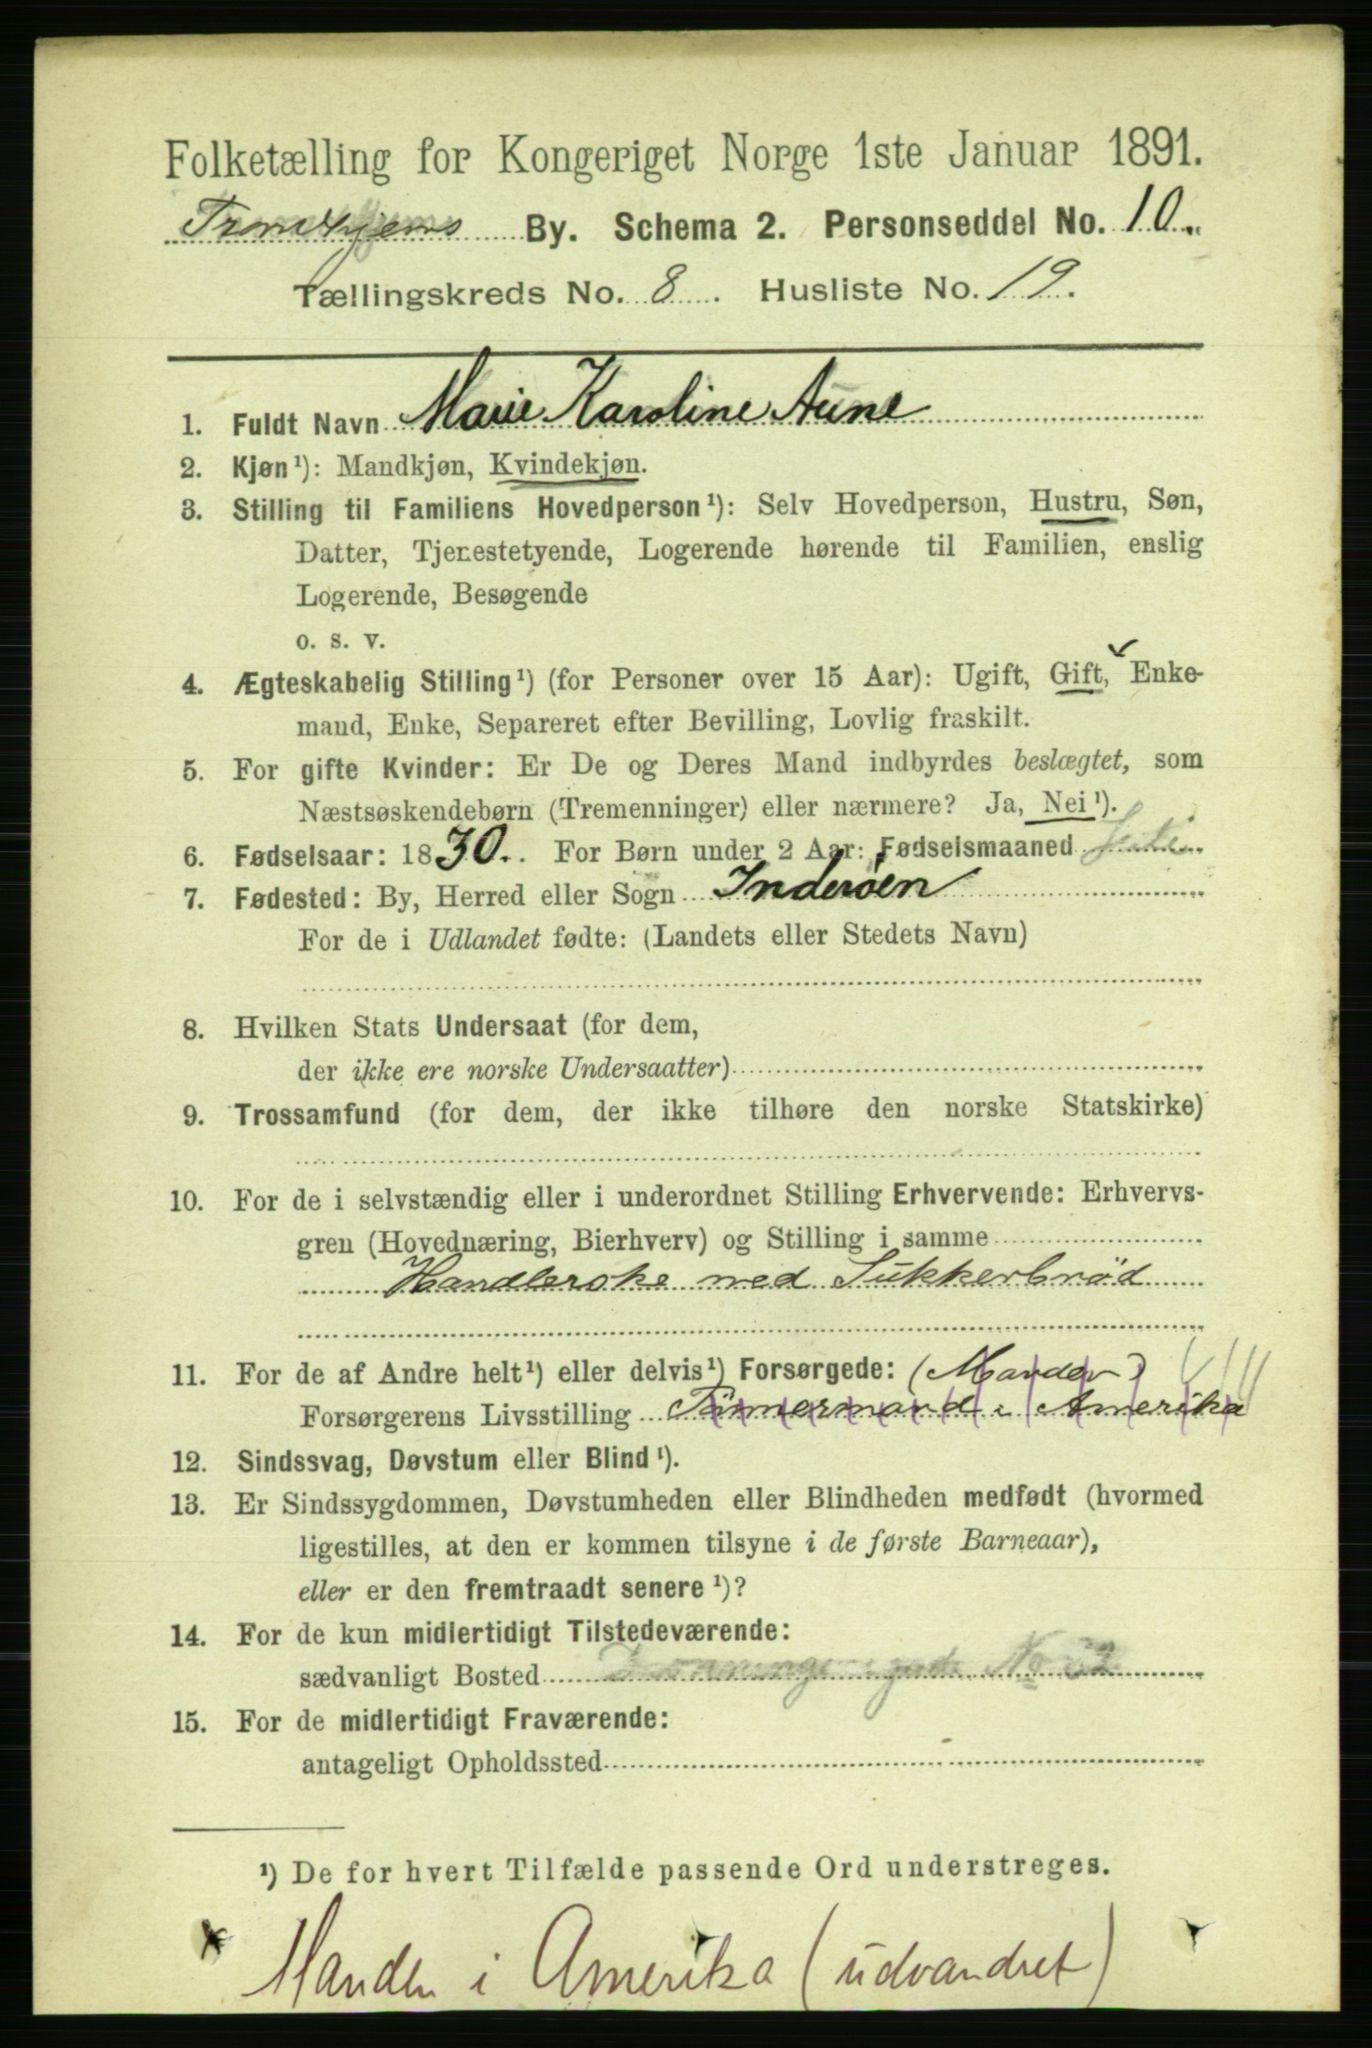 Folketælling for Kongeriget Norge 1ste Januar 1891.
Trondhjems By. Schema 2. Personseddel No. 10.
Tællingskreds No. 8. Husliste No. 19.
1. Fuldt Navn Marie Karoline Aune
2. Kjøn¹): Mandkjøn, Kvindekjøn.
3. Stilling til Familiens Hovedperson¹): Selv Hovedperson, Hustru, Søn,
Datter, Tjenestetyende, Logerende hørende til Familien, enslig
Logerende, Besøgende
o. s. v.
4. Ægteskabelig Stilling¹) (for Personer over 15 Aar): Ugift, Gift, Enke-
mand, Enke, Separeret efter Bevilling, Lovlig fraskilt.
5. For gifte Kvinder: Er De og Deres Mand indbyrdes beslægtet, som
Næstsøskendebørn (Tremenninger) eller nærmere? Ja, Nei¹).
6. Fødselsaar: 1830. For Børn under 2 Aar: Fødselsmaaned
7. Fødested: By, Herred eller Sogn Inderøen
For de i Udlandet fødte: (Landets eller Stedets Navn)
8. Hvilken Stats Undersaat (for dem,
der ikke ere norske Undersaatter)
9. Trossamfund (for dem, der ikke tilhøre den norske Statskirke)
10. For de i selvstændig eller i underordnet Stilling Erhvervende: Erhvervs-
gren (Hovednæring, Bierhverv) og Stilling i samme
Handlerske med Sukkerbrød
11. For de af Andre helt¹) eller delvis¹) Forsørgede: (Manden)
Forsørgerens Livsstilling Tømermand i Amerika
12. Sindssvag, Døvstum eller Blind¹).
13. Er Sindssygdommen, Døvstumheden eller Blindheden medfødt (hvormed
ligestilles, at den er kommen tilsyne i de første Barneaar),
eller er den fremtraadt senere¹)?
14. For de kun midlertidigt Tilstedeværende:
sædvanligt Bosted No
15. For de midlertidigt Fraværende:
antageligt Opholdssted
¹) De for hvert Tilfælde passende Ord understreges.
Manden i Amerika (udvandret)